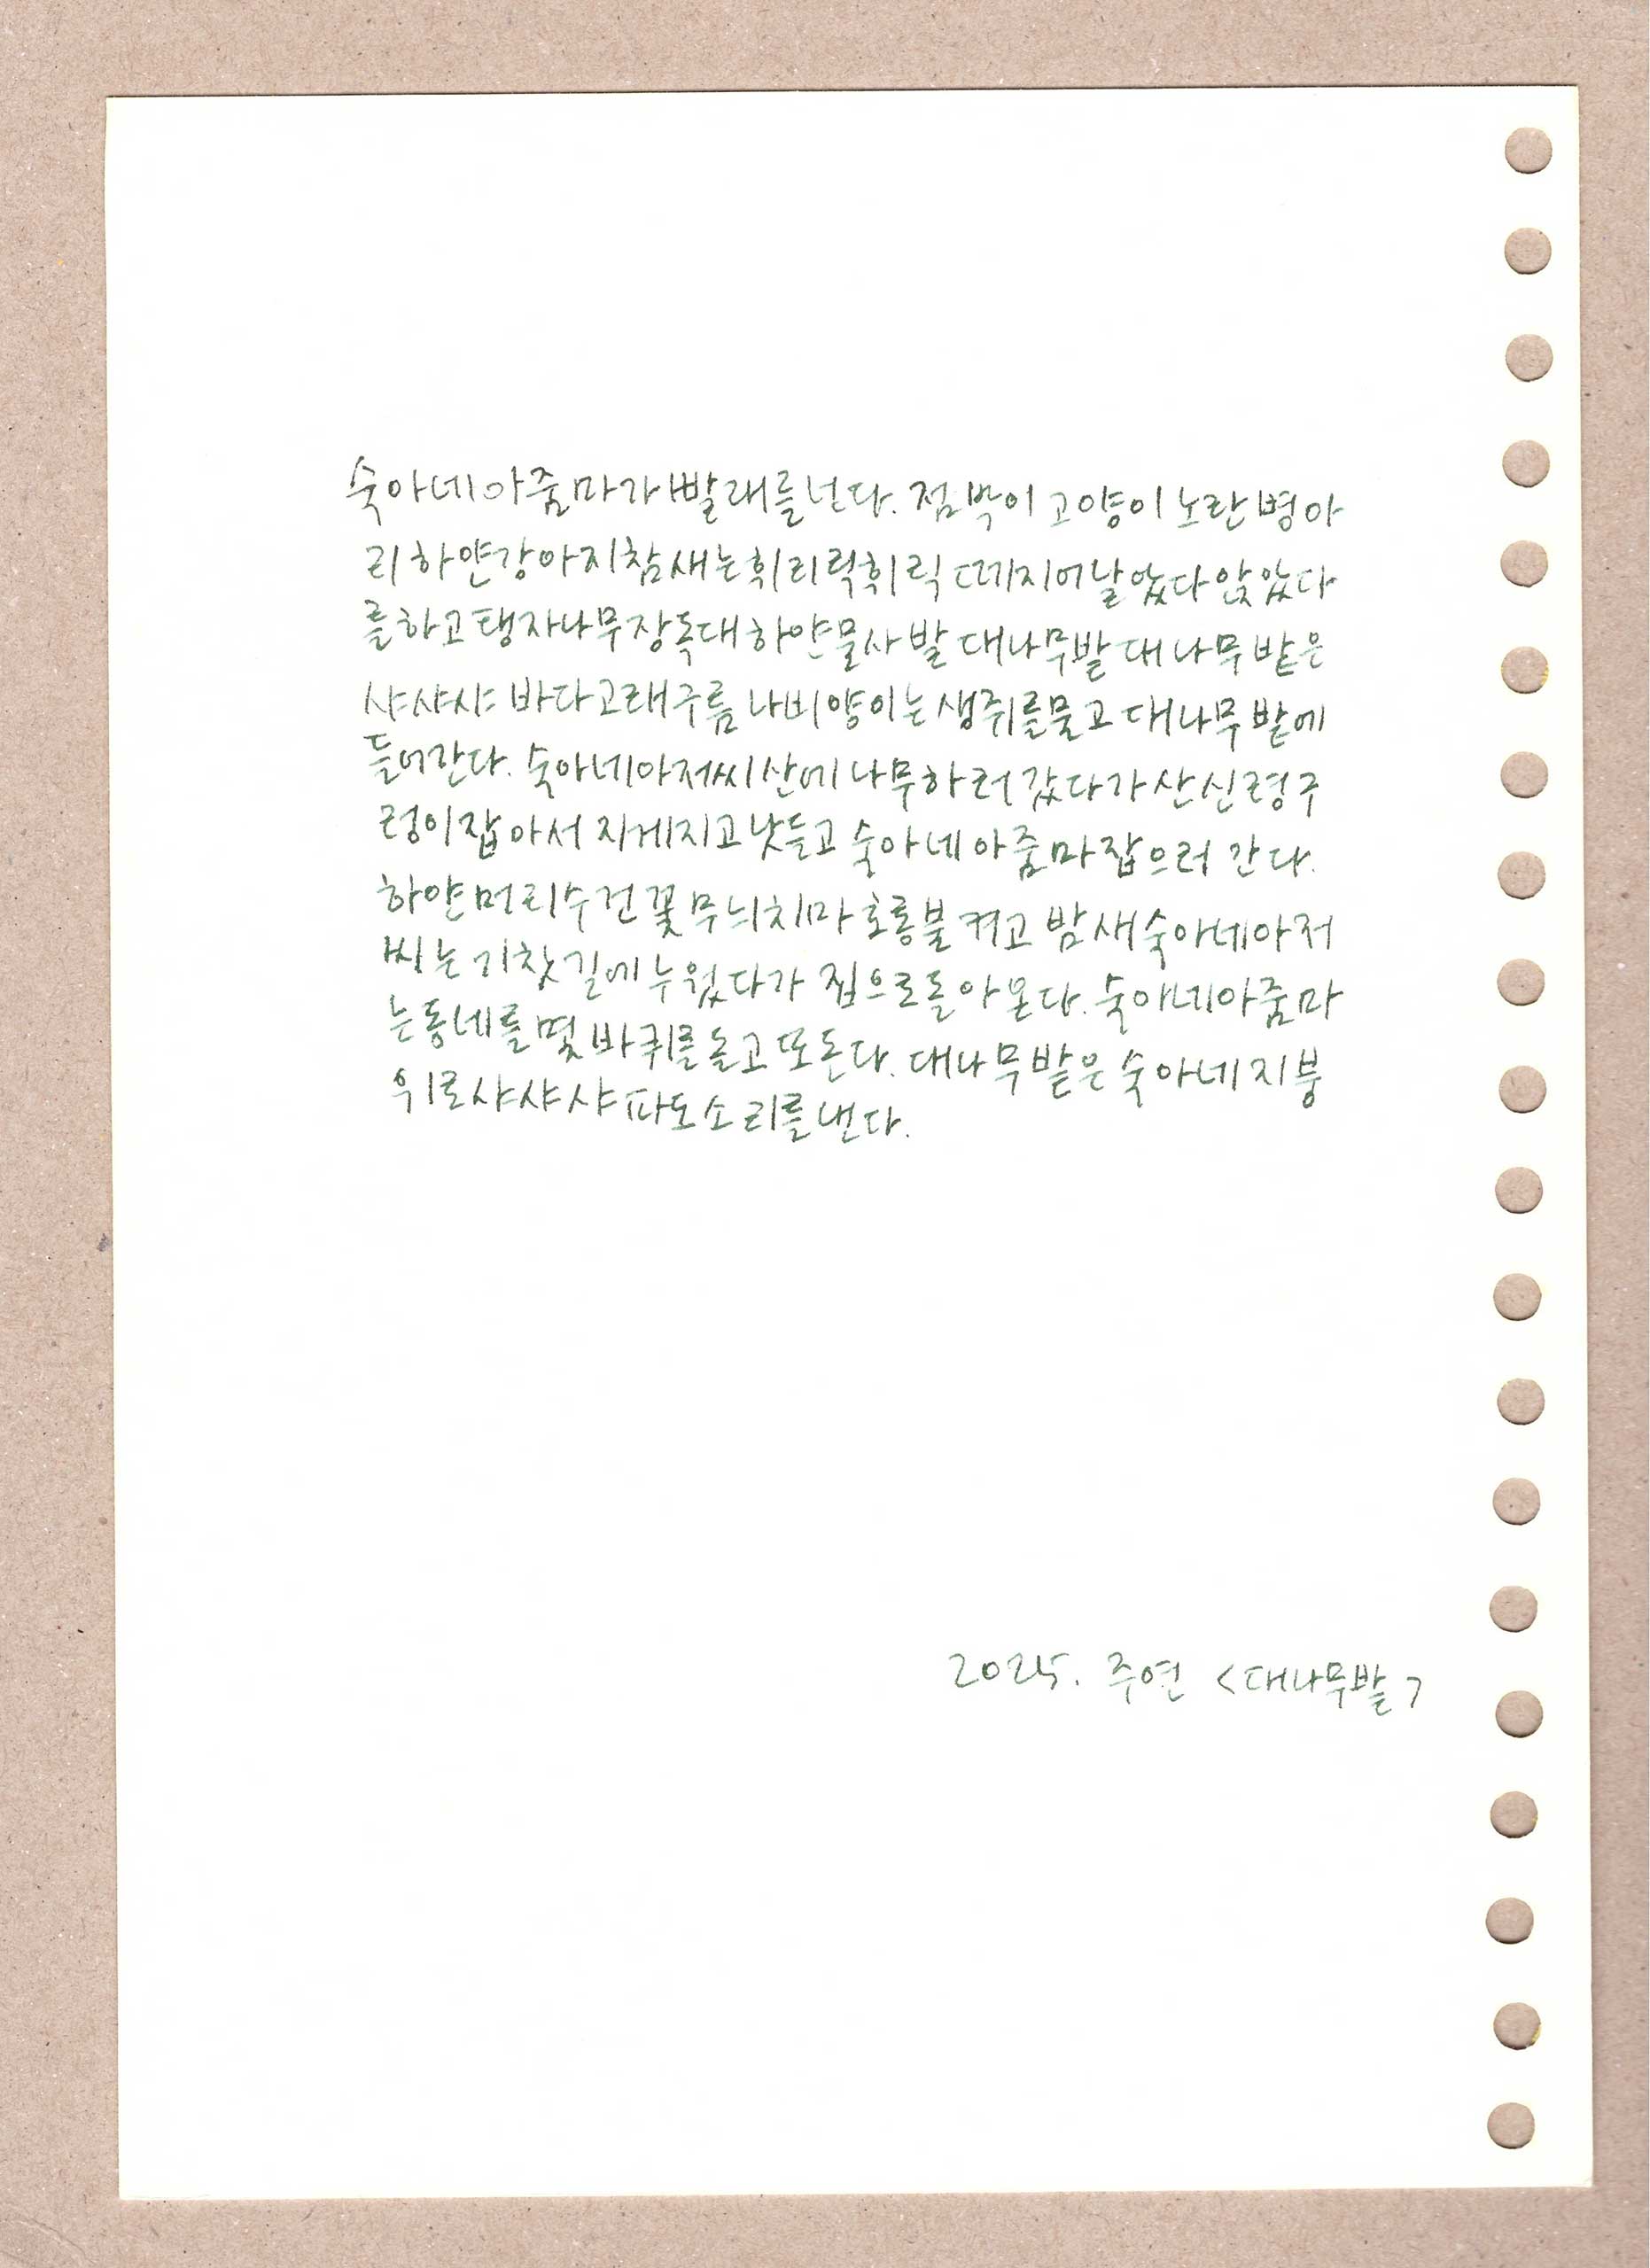 숙아네아줌마가빨래를넌다. 점박이 고양이 노란병아
리하얀강아지참새는휘리릭휘릭 떼지어날았다앉았다
를하고탱자나무장독대하얀물사발 대나무발대나무밭은
샤샤샤 바다고래구름 나비양이는생쥐를물고 대나무밭에
들어간다. 숙아네아저씨산에나무하러갔다가산신령구
렁이잡아서 지게지고낫들고 숙아네아줌마잡으러 간다.
하얀머리수건꽃무늬치마호롱불켜고 밤새숙아네아저
씨는기찻길에누웠다가 집으로돌아온다. 숙아네아줌마
는동네를몇바퀴를돌고또돈다. 대나무밭은숙아네지붕
위로샤샤샤파도소리를낸다.
2025. 주연 <대나무밭>